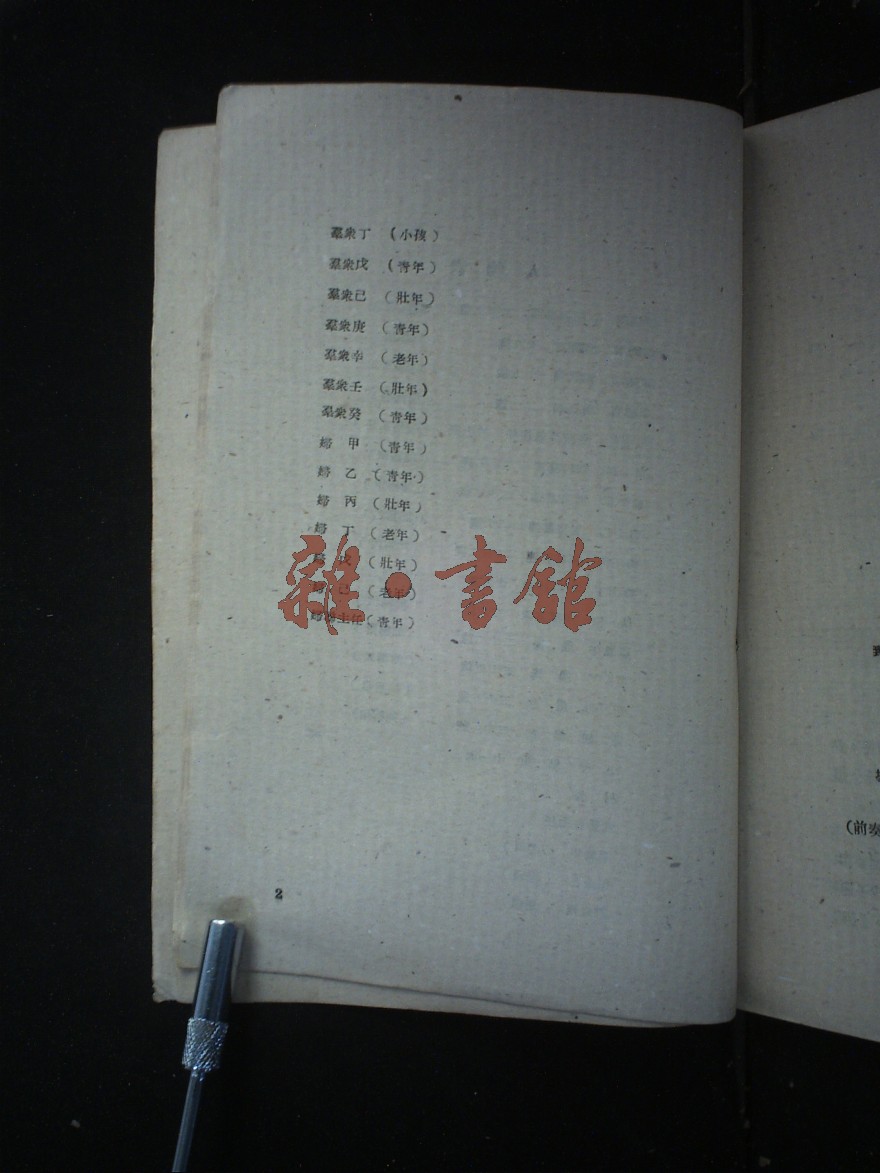 羣衆丁 (小孩)
羣衆戊 (靑年)
羣衆己 (壯年)
羣衆庚 (靑年)
羣衆辛 (老年)
羣衆壬 (壯年)
羣衆癸 (靑年)
婦 甲 (靑年)
婦 乙 (靑年)
婦 丙 (壯年)
婦 丁 (老年)
婦 戊 (壯年)
婦 己 (老年)
主任(靑年)
雜·書館
2
(前奏